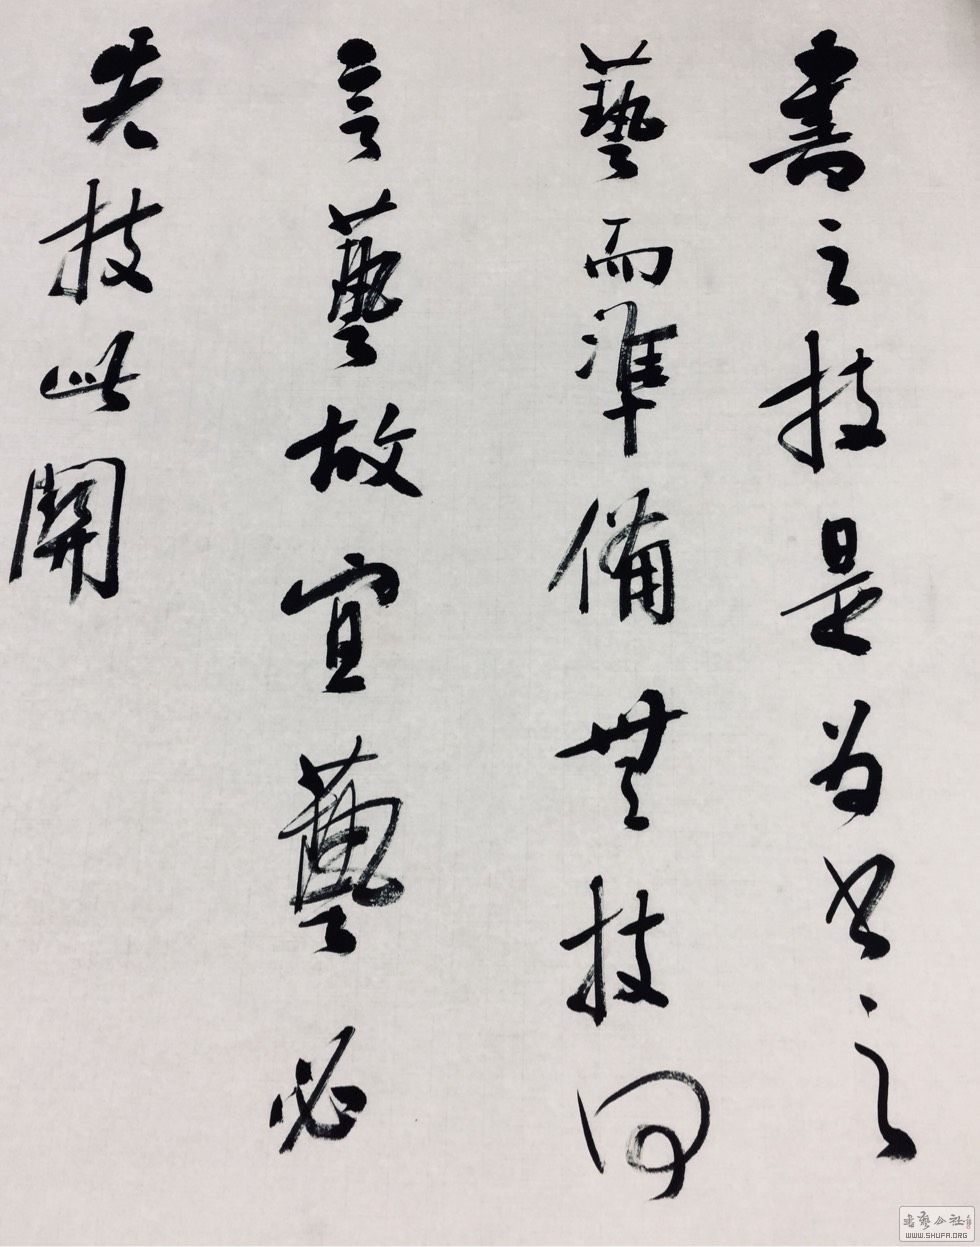 書之技是为书之
藝而準備無技何
言藝故宜藝必
先技此開
书艺公社
WWW.SHUFA.ORG